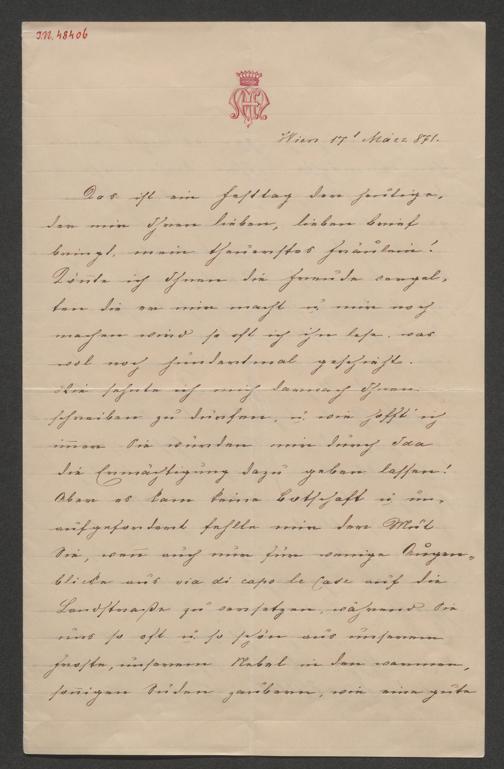 J.N. 48406
Wien 17t März 871.
Das ist ein Festtag der heutige,
der mir Ihren lieben, lieben Brief
bringt, mein theuerstes Fräulein!
Könnte ich Ihnen die Freude vergel-
ten die er mir macht u mir noch
machen wird so oft ich ihn lese. was
wol noch hundertmal geschieht.
Wie sehnte ich mich darnach Ihnen
schreiben zu dürfen, u. wie hofft' ich
im̄er Sie würden mir durch Ida
die Ermächtigung dazu geben lassen!
Aber es kam keine Botschaft u un-
aufgefordert fehlte mir der Mut
Sie, wen̄ auch nur für wenige Augen-
blicke aus via di capo le Case auf die
Landstraße zu versetzen, während Sie
uns so oft u so schön aus unserem
Froste, unserem Nebel in den warmen,
son̄igen Süden zaubern, wie eine gute